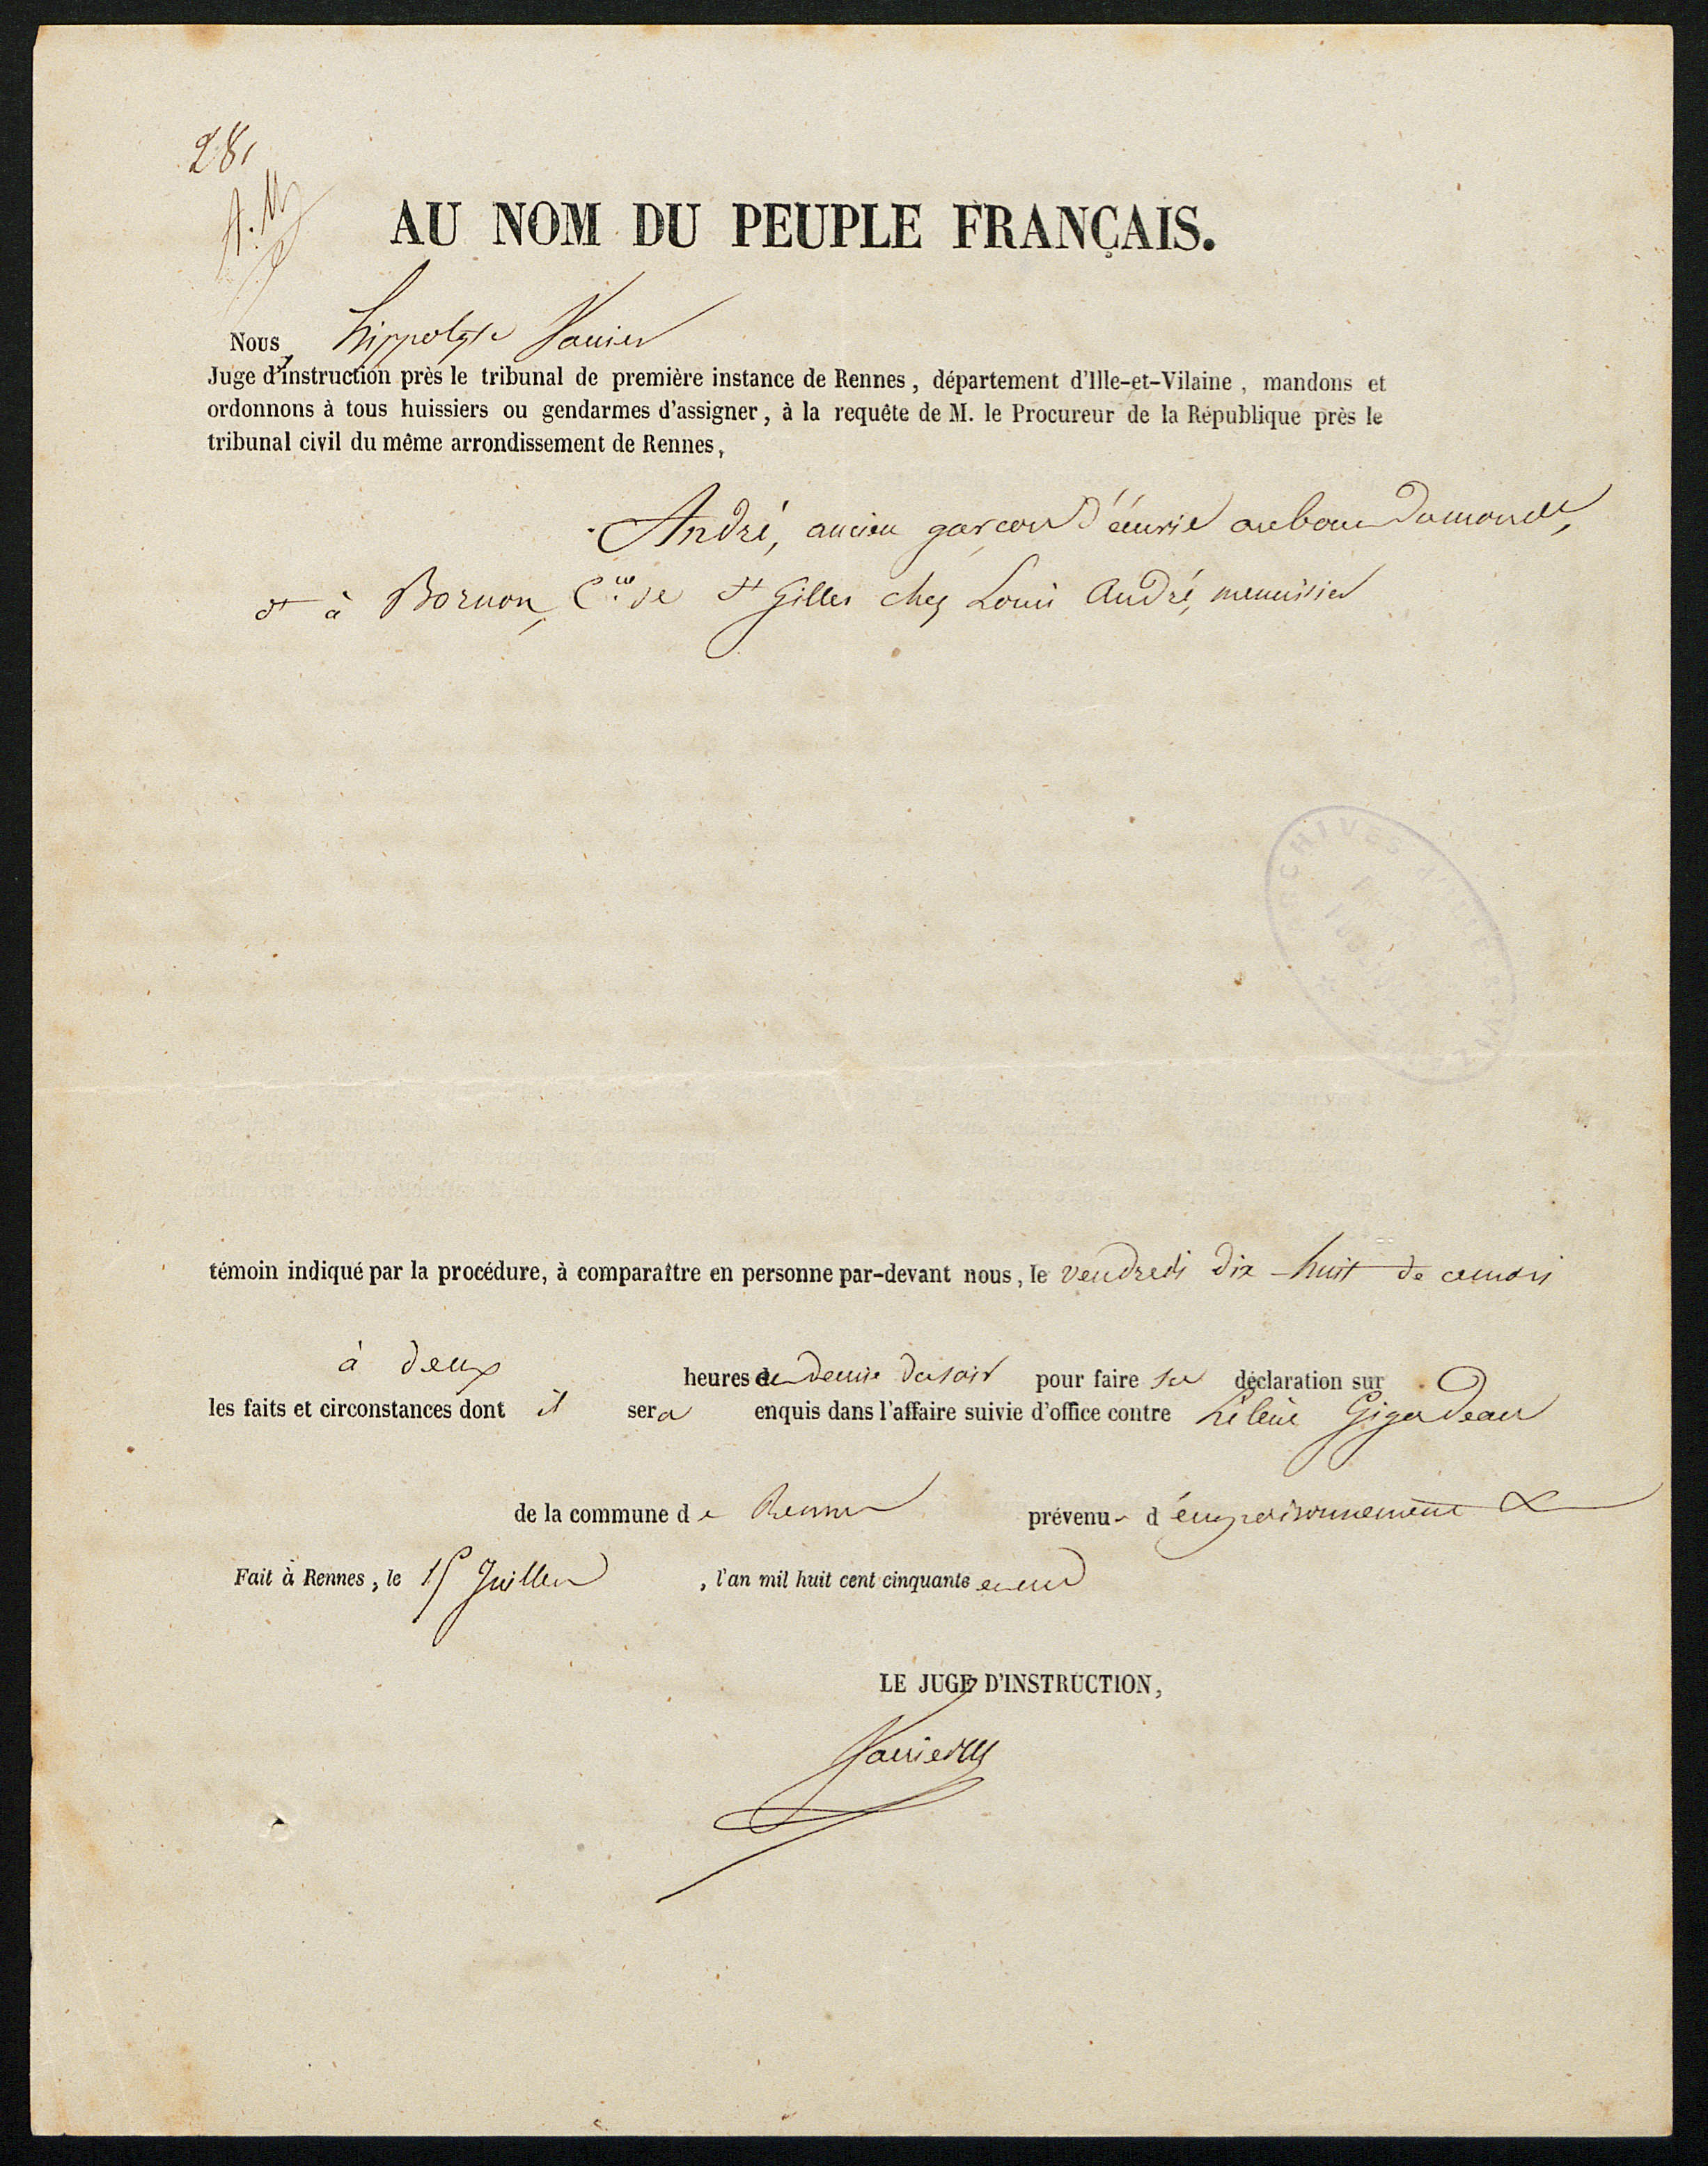 28
AU NOM DU PEUPLE FRANÇAIS.
Nous hippolyte Vannier
Juge d'instruction près le tribunal de première instance de Rennes, département d'Ille-et-Vilaine, mandons et
ordonnons à tous huissiers ou gendarmes d'assigner, à la requête de M. le Procureur de la République près le
tribunal civil du même arrondissement de Rennes,
André, ancien garçon d'écurie au bout du monde,
dt à Bornon, Cne de St Gilles chez Louis André, menuisier
ARCHIVES D'ILLE-&-VILAINE
témoin indiqué par la procédure, à comparaître en personne par-devant nous, le vendredi dix huit de ce mois
à deux heures et demie du soir pour faire sa déclaration sur
les faits et circonstances dont il sera enquis dans l'affaire suivie d'office contre hélène Jegadeau
de la commune de Rennes prévenue d'empoisonnement &
Fait à Rennes, le 15 Juillet, l'an mil huit cent cinquante et un
LE JUGE D'INSTRUCTION,
Vannier